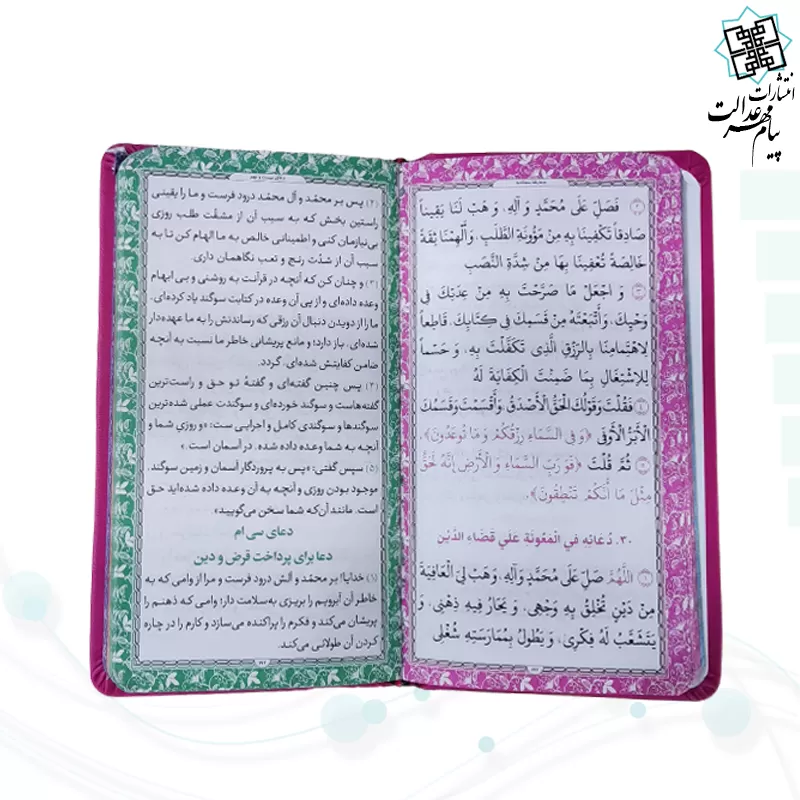 انتشارات
پیام مهر عدالت
فَصَلِّ عَلَى مُحَمَّدٍ وَ آلِهِ، وَ هَبْ لَنَا يَقِيناً
صَادِقاً تَكْفِينَا بِهِ مِنْ مَؤُونَةِ الطَّلَبِ، وَ أَلْهِمْنَا ثِقَةً
خَالِصَةً تُعْفِينَا بِهَا مِنْ شِدَّةِ النَّصَبِ
وَ اجْعَلْ مَا صَرَّحْتَ بِهِ مِنْ عِدَتِكَ فِي
وَحْيِكَ، وَ أَتْبَعْتَهُ مِنْ قَسَمِكَ فِي كِتَابِكَ، قَاطِعاً
لِاهْتِمَامِنَا بِالرِّزْقِ الَّذِي تَكَفَّلْتَ بِهِ، وَ حَسْماً
لِلِاشْتِغَالِ بِمَا ضَمِنْتَ الْكِفَايَةَ لَهُ
فَقُلْتَ وَ قَوْلُكَ الْحَقُّ الْأَصْدَقُ، وَ أَقْسَمْتَ وَ قَسَمُكَ
الْأَبَرُّ الْأَوْفَى ﴿وَ فِي السَّمَاءِ رِزْقُكُمْ وَ مَا تُوعَدُونَ﴾.
ثُمَّ قُلْتَ ﴿فَوَ رَبِّ السَّمَاءِ وَ الْأَرْضِ إِنَّهُ لَحَقٌّ
مِثْلَ مَا أَنَّكُمْ تَنْطِقُونَ﴾.
۳۰. دُعَائِهِ فِي الْمَعُونَةِ عَلَي قَضَاءِ الدَّيْنِ
اللَّهُمَّ صَلِّ عَلَى مُحَمَّدٍ وَ آلِهِ، وَ هَبْ لِيَ الْعَافِيَةَ
مِنْ دَيْنٍ تُخْلِقُ بِهِ وَجْهِي، وَ يَحَارُ فِيهِ ذِهْنِي، وَ
يَتَشَعَّبُ لَهُ فِكْرِي، وَ يَطُولُ بِمُمَارَسَتِهِ شُغْلِي
(۲) پس بر محمّد و آل محمّد درود فرست و ما را یقینی
راستین بخش که به سبب آن از مشقّت طلب روزی
بی‌نیازمان کنی و اطمینانی خالص به ما الهام کن تا به
سبب آن از شدّت رنج و تعب نگاهمان داری.
(۳) و چنان کن که آنچه در قرآنت به روشنی و بی ابهام
وعده داده‌ای و از پی آن وعده در کتابت سوگند یاد کرده‌ای،
ما را از دویدن دنبال آن رزقی که رساندنش را به ما عهده‌دار
شده‌ای، باز دارد؛ و مانع پریشانی خاطر ما نسبت به آنچه
ضامن کفایتش شده‌ای، گردد.
(۴) پس چنین گفته‌ای و گفتهٔ تو حق و راست‌ترین
گفته‌هاست و سوگند خورده‌ای و سوگندت عملی شده‌ترین
سوگندها و سوگندی کامل و اجرایی ست: «و روزیِ شما و
آنچه به شما وعده داده شده، در آسمان است.»
(۵) سپس گفتی: «پس به پروردگار آسمان و زمین سوگند.
موجود بودن روزی و آنچه به آن وعده داده شده‌اید حق
است. مانند آن‌که شما سخن می‌گویید»
دعای سی ام
دعا برای پرداخت قرض و دین
(۱) خدایا! بر محمّد و آلش درود فرست و مرا از وامی که به
خاطر آن آبرویم را بریزی به‌سلامت دار؛ وامی که ذهنم را
پریشان می‌کند و فکرم را پراکنده می‌سازد و کارم را در چاره
کردن آن طولانی می‌کند.